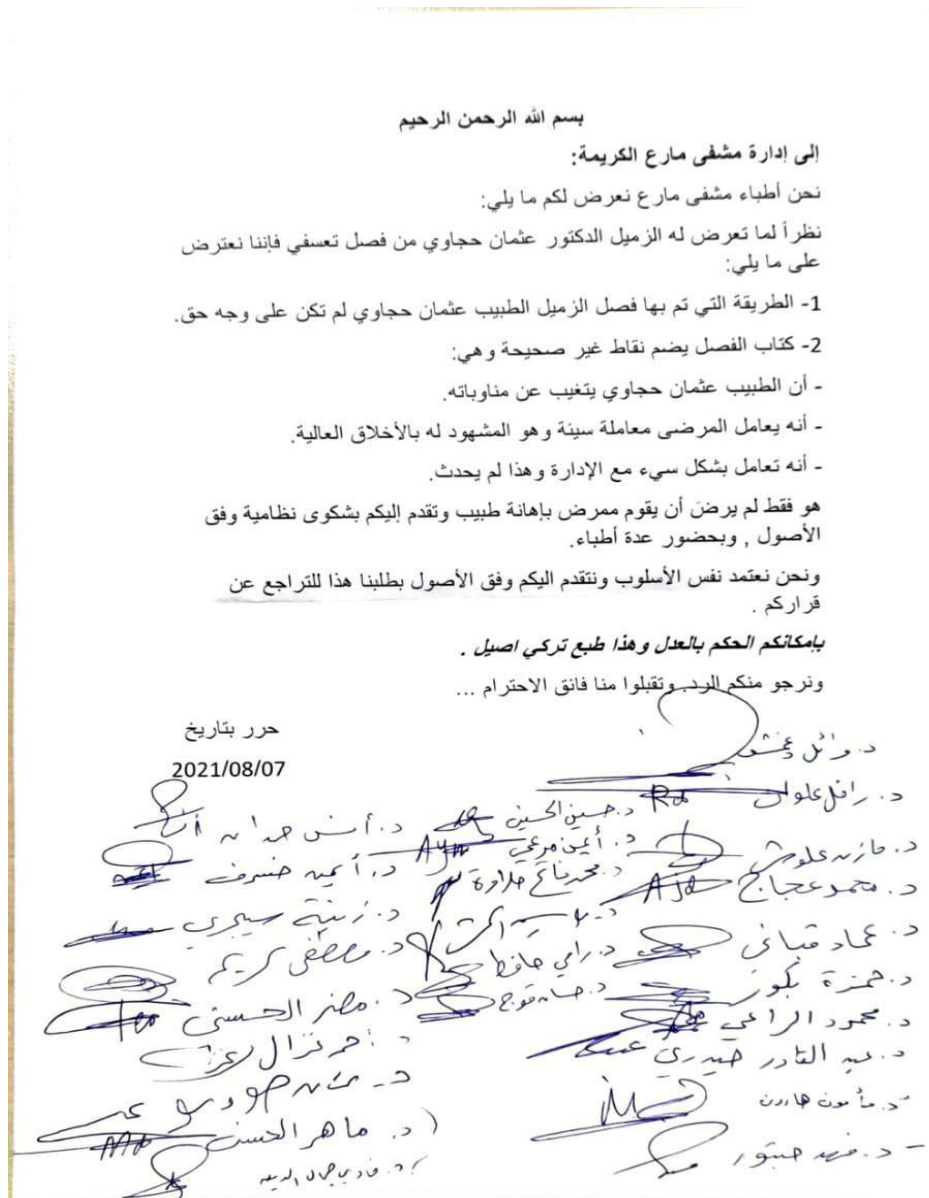 بسم الله الرحمن الرحيم
إلى إدارة مشفى مارع الكريمة:
نحن أطباء مشفى مارع نعرض لكم ما يلي:
نظراً لما تعرض له الزميل الدكتور عثمان حجاوي من فصل تعسفي فإننا نعترض
على ما يلي:
1- الطريقة التي تم بها فصل الزميل الطبيب عثمان حجاوي لم تكن على وجه حق.
2- كتاب الفصل يضم نقاط غير صحيحة وهي:
- أن الطبيب عثمان حجاوي يتغيب عن مناوباته.
- أنه يعامل المرضى معاملة سيئة وهو المشهود له بالأخلاق العالية.
- أنه تعامل بشكل سيء مع الإدارة وهذا لم يحدث.
هو فقط لم يرضَ أن يقوم ممرض بإهانة طبيب وتقدم إليكم بشكوى نظامية وفق
الأصول , وبحضور عدة أطباء.
ونحن نعتمد نفس الأسلوب ونتقدم اليكم وفق الأصول بطلبنا هذا للتراجع عن
قراركم .
بإمكانكم الحكم بالعدل وهذا طبع تركي اصيل .
ونرجو منكم الرد وتقبلوا منا فائق الاحترام ...
حرر بتاريخ
2021/08/07
د. وائل
د. رافل علوان
د. حسين الحسين
د. أنس حمدان
د. مازن علوش
د. أيمن مرعي
د. أيمن خسرف
د. محمود عجاج
د. محمد ناجح حلاوة
د. زينة سيجري
د. عماد قباني
د. رامي حافظ
د. مصطفى كريم
د. حمزة بكور
د. حسان قوج
د. مضر الحسن
د. محمود الراعي
د. أحمد نزال
د. عبد القادر حيدري
د. مأمون هارون
د. ماهر الحسن
د. فهد حبتور
د. فادي جمال الدين